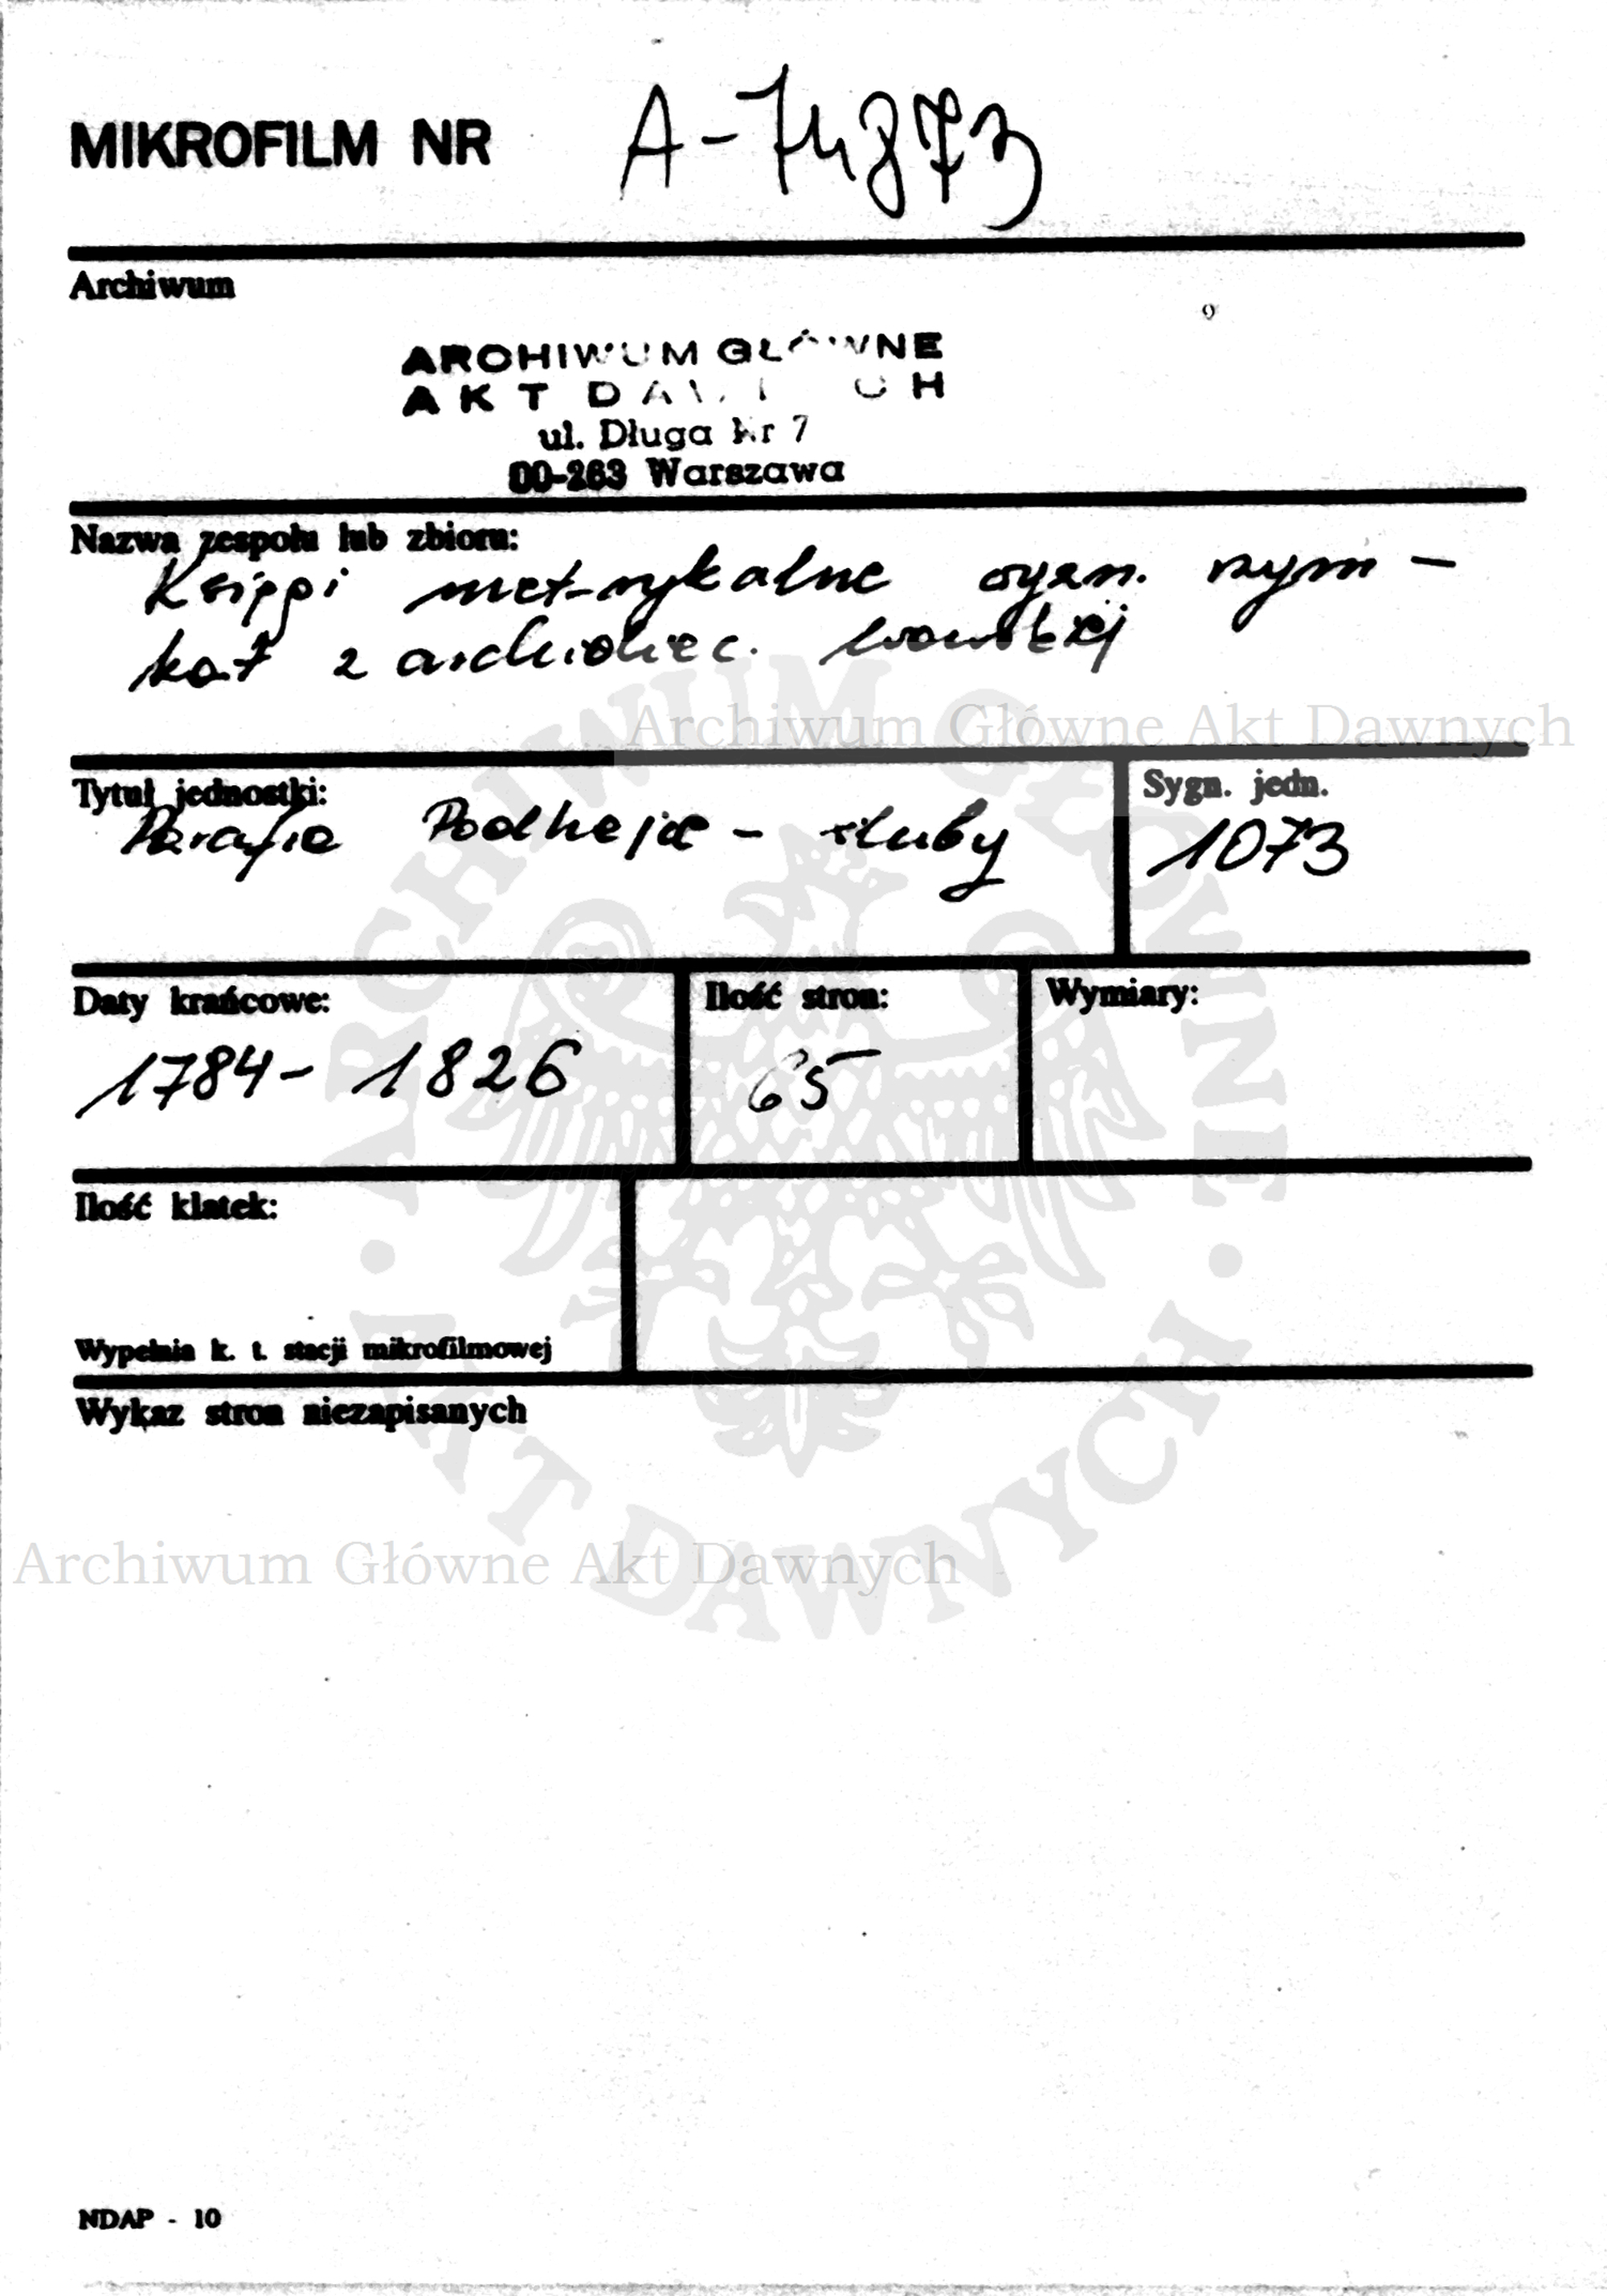 MIKROFILM NR A-74873
Archiwum
ARCHIWUM GŁÓWNE
AKT DAWNYCH
ul. Długa Nr 7
00-263 Warszawa
Nazwa zespołu lub zbioru:
Księgi metrykalne rym-
kat z archidiec. lwowskiej
Archiwum Główne Akt Dawnych
Tytuł jednostki:
Parafia Podhajce - śluby
Sygn. jedn.
1073
Daty krańcowe:
1784 - 1826
Ilość stron:
65
Wymiary:
Ilość klatek:
Wypełnia k. t. stacji mikrofilmowej
Wykaz stron niezapisanych
ARCHIWUM GŁÓWNE
AKT DAWNYCH
Archiwum Główne Akt Dawnych
NDAP - 10